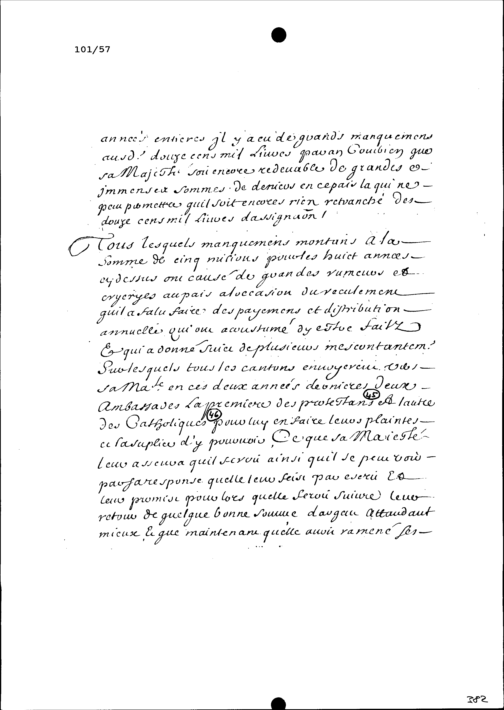 101/57
années entieres jl y a eu de grands manquemens
ausd. douze cens mil liures pavan combien que
sa Majesté soit encore redeuable de grandes et
jmmenses sommes de deniers en ce païs la qui ne
peu permettre quil soit encores rien retranché des
douze cens mil liures dassignaon /
Tous lesquels manquemens montans a la
somme de cinq milions pour les huict années
cydessus ont causé de grandes rumeurs et
cryeryes au païs a loccasion du reculement
quil a falu faire des payemens et distribution
annuelle qui on acoustumé dy estre faitz
Et qui a donné suiet de plusieurs mescontantem.
Sur lesquels tous les cantons enuoyerent vers
sa Mate en ces deux années dernieres deux
Ambassades la premiere des protestans (45) Et lautre
des Catholiques (46) pour luy en faire leurs plaintes
et la suplier d'y pouruoir Ce que sa Maiesté
leur asseura quil seroit ainsi quil se peut voir
par sa responce quelle leur feist par escrit Et
leur promist pour lors quelle feroit suiure leur
retour de quelque bonne somme dargent attandant
mieux Et que maintenant quelle auoit ramené ses
382